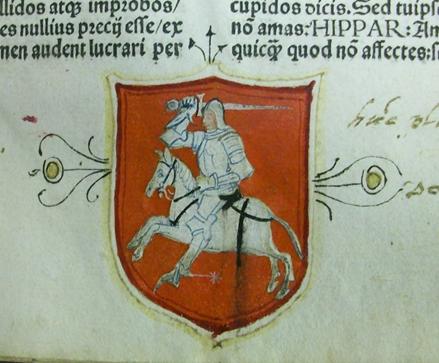 llidos atqꝫ improbos/
es nullius precij esse/ex
men audent lucrari per
cupidos dicis. Sed tuips
nõ amas: HIPPAR: Am
quicqꝫ quod nõ affectes: s